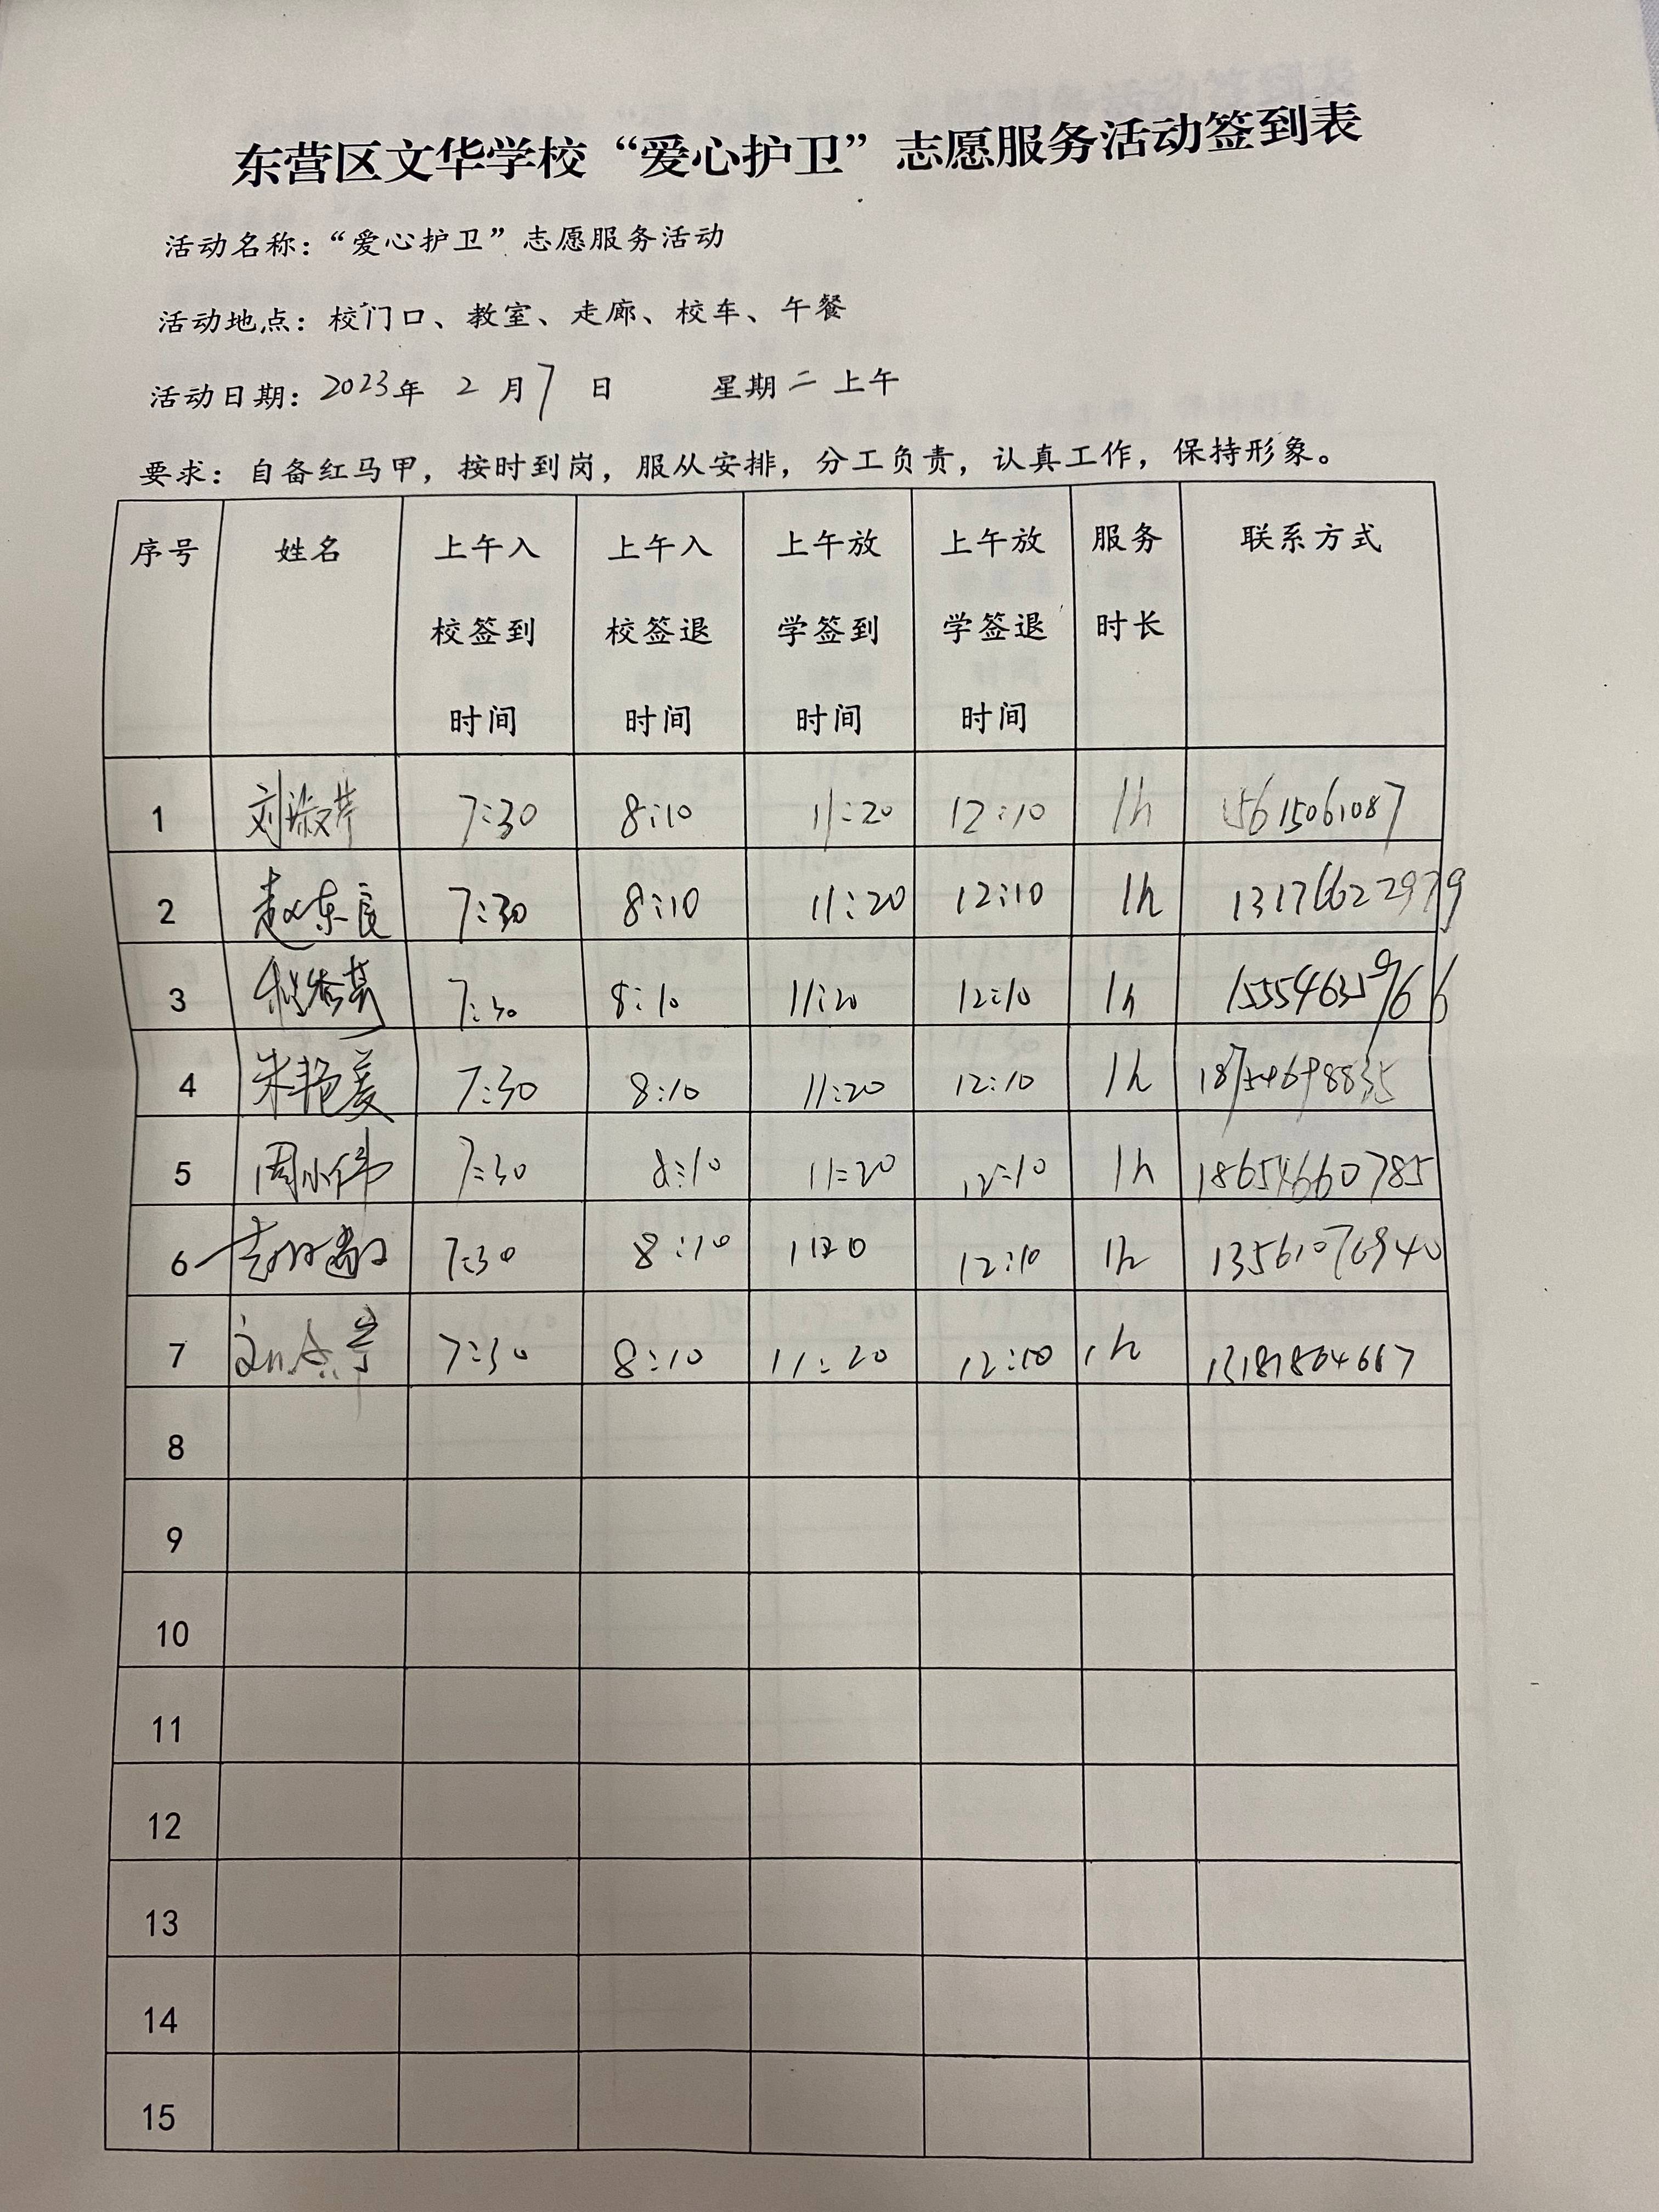 东营区文华学校“爱心护卫”志愿服务活动签到表
活动名称：“爱心护卫”志愿服务活动
活动地点：校门口、教室、走廊、校车、午餐
活动日期：2023年 2 月 7 日 星期二 上午
要求：自备红马甲，按时到岗，服从安排，分工负责，认真工作，保持形象。
序号 姓名 上午入校签到时间 上午入校签退时间 上午放学签到时间 上午放学签退时间 服务时长 联系方式
1 刘淑芹 7:30 8:10 11:20 12:10 1h 15615061087
2 赵东良 7:30 8:10 11:20 12:10 1h 13176622979
3 7:30 8:10 11:20 12:10 1h
4 朱艳爱 7:30 8:10 11:20 12:10 1h
5 周小伟 7:30 8:10 11:20 12:10 1h 18654660785
6 7:30 8:10 1120 12:10 1h 13561076940
7 7:30 8:10 11:20 12:10 1h
8
9
10
11
12
13
14
15